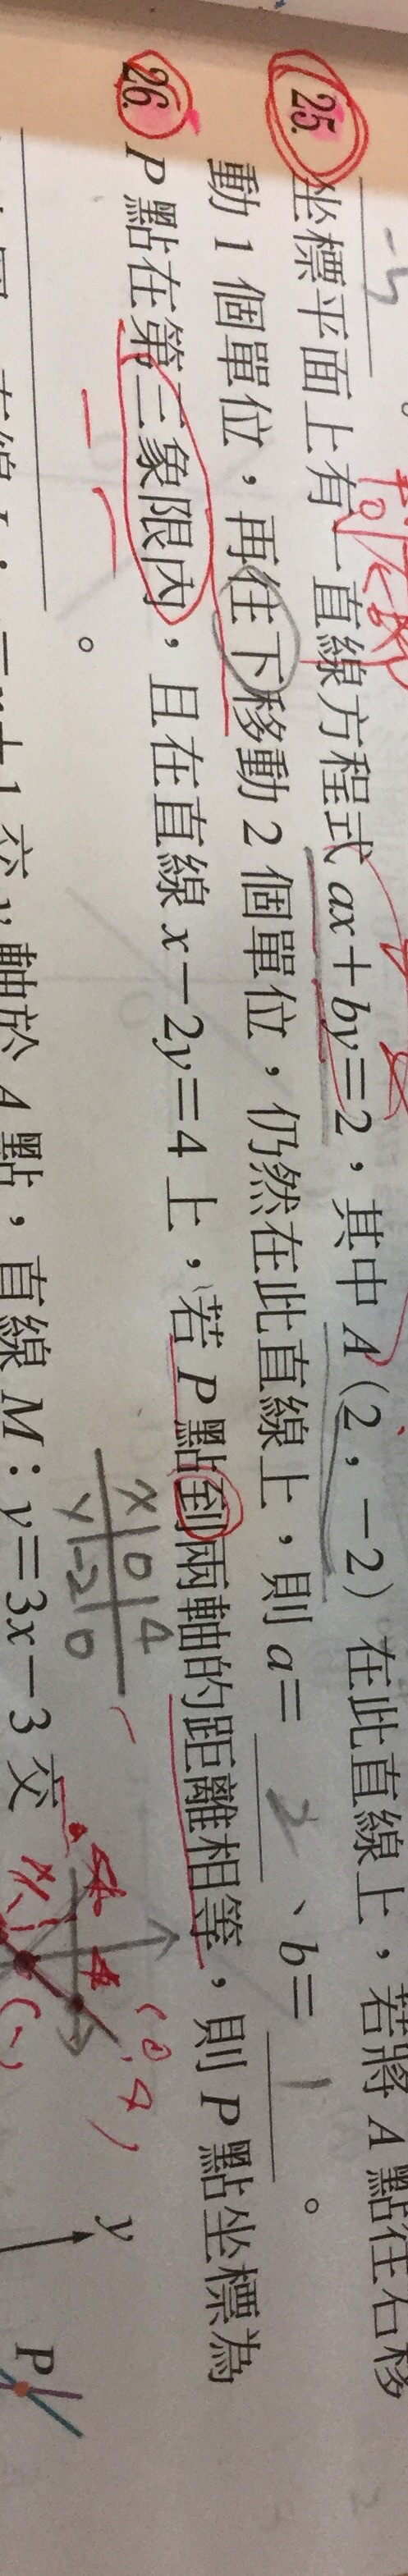 -5
25. 坐標平面上有一直線方程式 ax+by=2，其中 A(2，-2) 在此直線上，若將 A 點往右移
動 1 個單位，再往下移動 2 個單位，仍然在此直線上，則 a= 2 、b= 1 。
26. P 點在第三象限內，且在直線 x-2y=4 上，若 P 點到兩軸的距離相等，則 P 點坐標為
。
x 0 4
y -2 0
直線 M：y=3x-3 交
軸於 A 點，
y
P